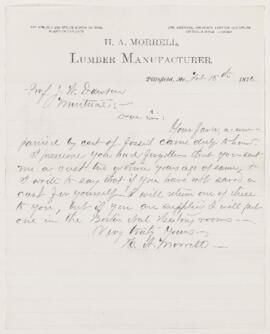 H. A. MORRELL,
LUMBER MANUFACTURER,
Pittsfield, Me., Feb 15th 187
Prof J. W. Dawson
Montreal;
Dear Sir:
Your favor, accom-
panied by cast of fossil came duly to hand.
I presume you had forgotten that you sent
me a cast two or three years ago of same, &
I write to say that if you have not saved a
cast for yourself I will return one of these
to you, but if you are supplied I will put
one in the Boston Nat History rooms
Very truly Yours
H. A. Morrell